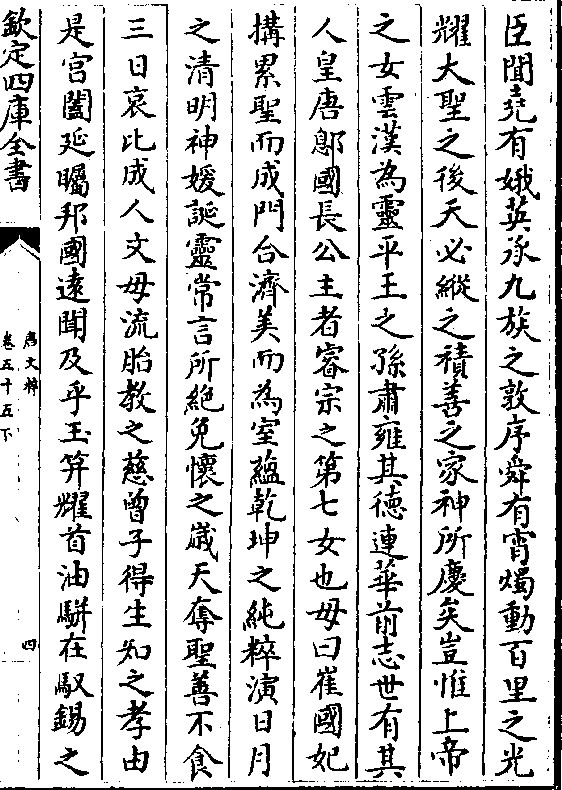 臣聞堯有娥英承九族之敦序舜有宵燭動百里之光
耀大聖之後天必縱之積善之家神所慶矣豈惟上帝
之女雲漢為靈平王之孫肅雍其德連華前志世有其
人皇唐鄎國長公主者睿宗之第七女也母曰崔國妃
搆累聖而成門合濟美而為室蘊乾坤之純粹演日月
之清明神媛誕靈常言所絕免懷之嵗天奪聖善不食
三日哀比成人文母流胎教之慈曾子得生知之孝由
是宫闈延矚邦國逺聞及乎玉笄耀首油軿在馭錫之
欽定四庫全書
唐文粹
卷五十五下
四